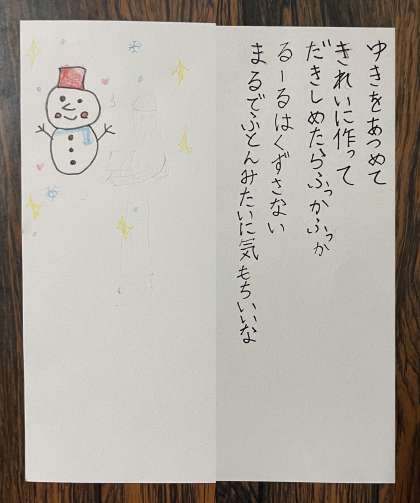 ゆきをあつめて
きれいに作って
だきしめたらふっかふっか
るーるはくずさない
まるでふとんみたいに気もちいいな